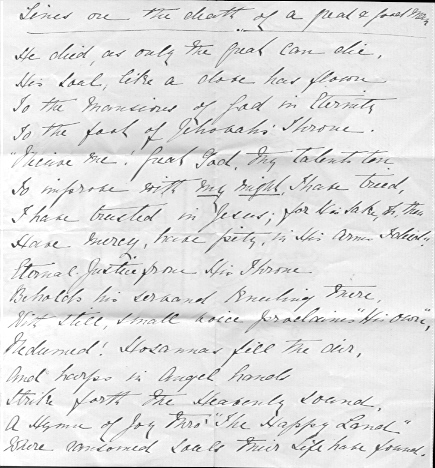 Lines on the death of a great & good Man
He died, as only the great can die,
His Soul, like a dove has flown
To the Mansions of God in Eternity
To the foot of Jehovah's Throne.
"Receive me! Great God, My talents ten
To improve with my might, I have tried,
I have trusted in Jesus; for His sake, Oh, then
Have mercy, have pity, in His Arms I
Eternal Justice from His Throne
Beholds his servant Kneeling there,
With still, small voice proclaims "His own",
Redeemed! Hosannas fill the air,
And harps in Angel hands
Strike forth the Heavenly sound,
A Hymn of Joy thro' "The Happy Land"
Where ransomed souls their Life have found.